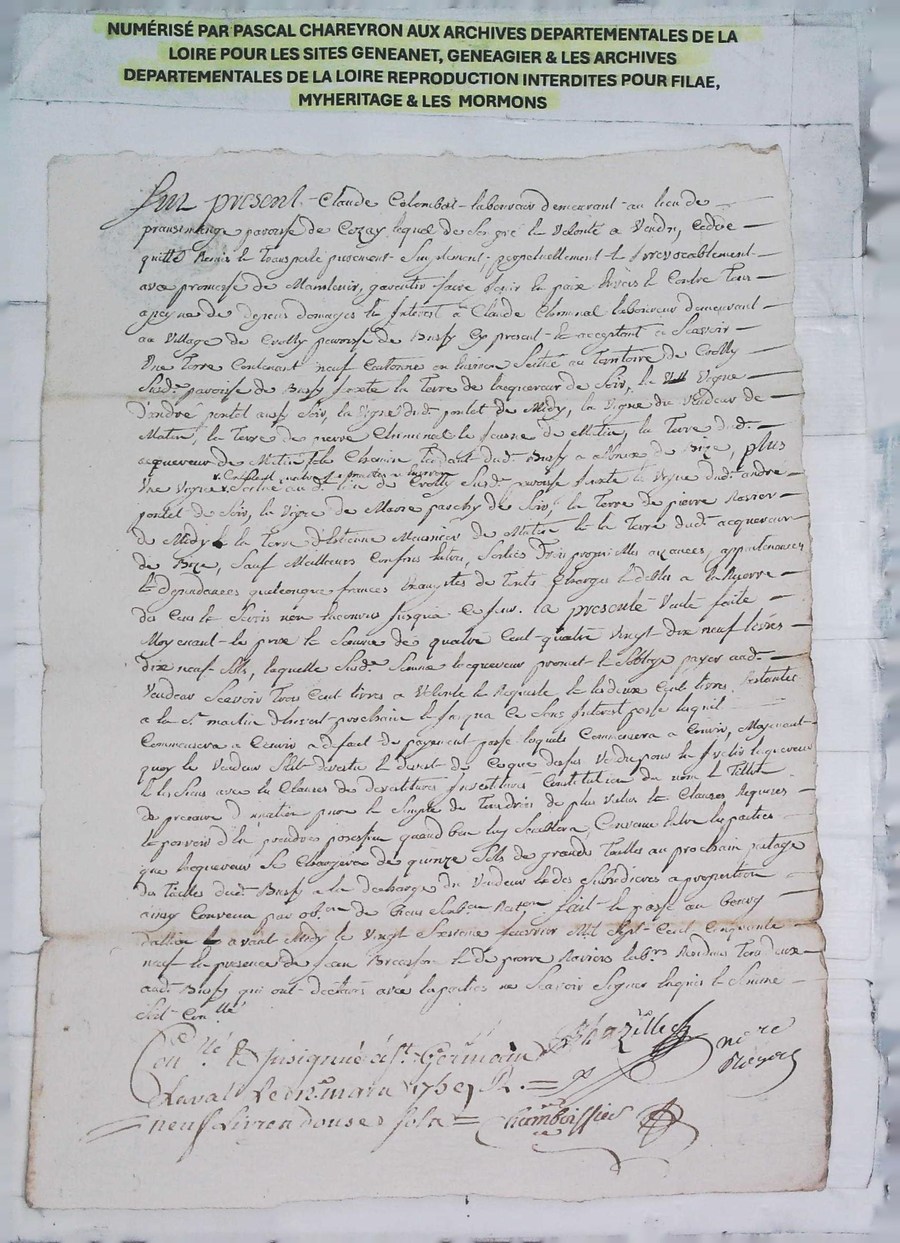 NUMÉRISÉ PAR PASCAL CHAREYRON AUX ARCHIVES DEPARTEMENTALES DE LA
LOIRE POUR LES SITES GENEANET, GENEAGIER & LES ARCHIVES
DEPARTEMENTALES DE LA LOIRE REPRODUCTION INTERDITES POUR FILAE,
MYHERITAGE & LES MORMONS
Fut present Claude Colombat laboureur demeurant au lieu de
paroisse de Cezay lequel de son gré et Volonté a Vendu, Cedde
quitté Remis et Transporté purement Simplement perpetuellement et irrevocablement
avec promesse de Maintenir, garentir faire jouir en paix Envers et Contre Tous
a peyne de depens domages et interest a Claude laboureur demeurant
au Village de Crolly paroisse de Bussy Cy present et acceptant a Scavoir
Une Terre Contenant neuf Cartonne ou Environ Scitué au Territoire de Crolly
Susd. paroisse de Bussy Juxte la Terre de lacquereur de Soir, la Vigne
d'andre pontet aussy Soir, la Vigne dud. pontet de Midy, la Vigne du Vendeur de
Matin, la Terre de pierre le Jeusne de Matin, la Terre dud.
acquereur de Matin le Chemin Tendant dud. Bussy a de Bize, plus
Une Vigne Scitué aud. lieu de Crolly Susd. paroisse Juxte la Vigne dud. andre
pontet de Soir, la Vigne de de Soir, la Terre de pierre
de Midy la Terre d'Estienne de Matin et la Terre dud. acquereur
de Bize, Sauf Meilleurs Confins Entrées, Sorties Droits proprietés aizances, appartenances
et dependances quelconque franches de Toute Charges et debtes a la Reserve
des Cens et Servis non Reconnus Jusqua Ce Jour. la presente Vente faite
Moyenant le prix et Somme de quatre Cent quatre Vingt dix neuf livres
dix neuf Sols, laquelle Susd. Somme lacquereur promet et Soblige payer aud.
Vendeur Scavoir Trois Cent livres a Volonté et Requeste et les deux Cent livres Restantes
a la St. martin d'hivert prochain et Jusqua Ce Sans Interest passé lequel
Commencera a Courir a defaut de payement passé lequels Commencera a Courir, Moyenant
quoy le Vendeur Sest devestu et devest de Ceque dessus Vendu pour en investir lacquereur
et les Siens avec les Clauses de devestitures Investitures Constitution du nom et Tiltre
de precaire plus Value et Clauses Requises
et pouvoir d'En prendre possession quand bon luy Semblera, Convenu Entre les parties
que lacquereur Se Chargera de quinze Sols de grande Tailles au prochain partage
des Tailles dud. Bussy a la decharge du Vendeur et des Subsidieres a proportion
ainsy Convenu par obon. de biens fait et passé au bourg
avant Midy le Vingt fevrier Mil Sept Cent Cinquante
neuf En presence de Jean et de pierre labrs. Tous deux
aud. Bussy qui ont declarés avec les parties ne Scavoir Signer Enquis et Somme
Con.llé & insignué a St. Germain
Laval Le mars 1759 R.
neuf Livres douse Sols